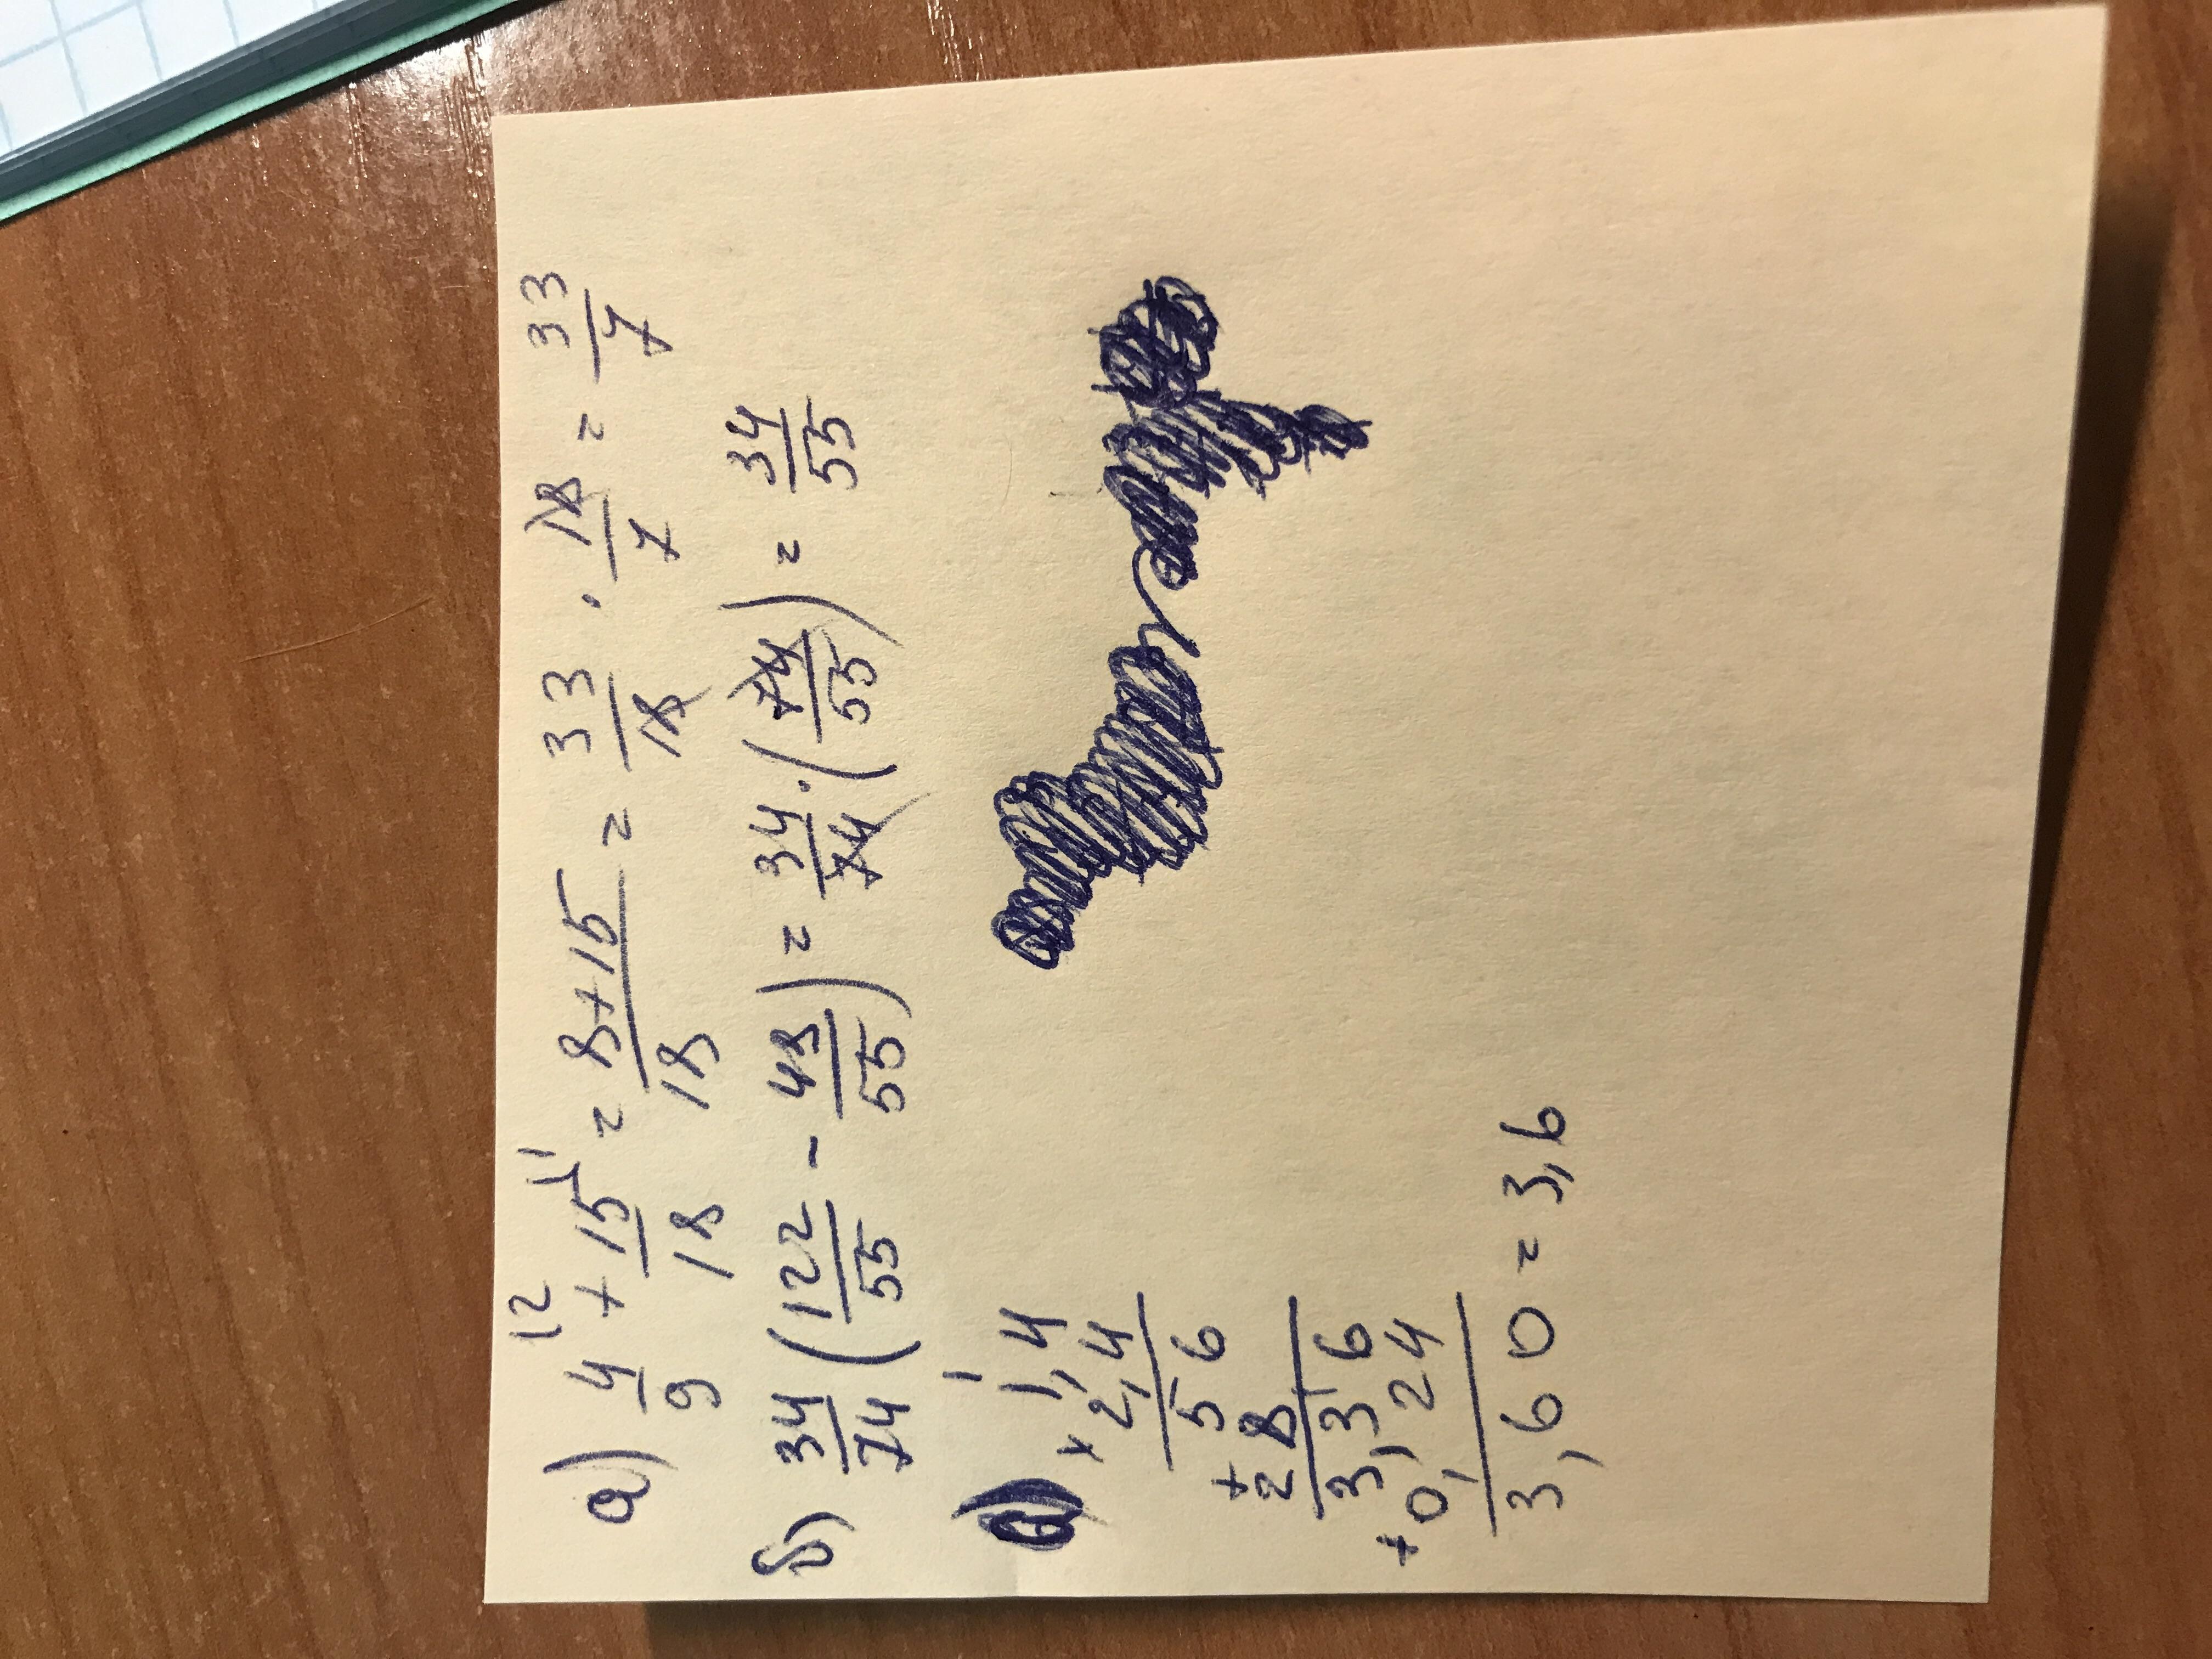 а) 4/9 |2 + 15/18 |1 = 8+15/18 = 33/18 · 18/7 = 33/7
б) 34/74 (122/55 - 48/55) = 34/74 · (74/55) = 34/55
1
1,4
× 2,4
5 6
+
2 8
3,3 6
+ 0,24
3,60 = 3,6